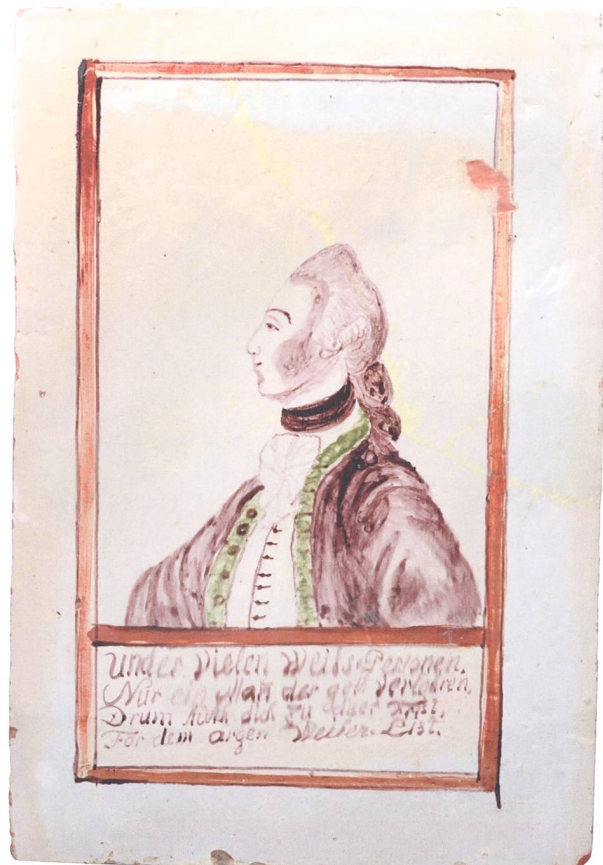 Under Vielen Weibs Personen.
Nur ein Man der geth Verlohren,
Drum dich zu
For dem argen Weiber List.